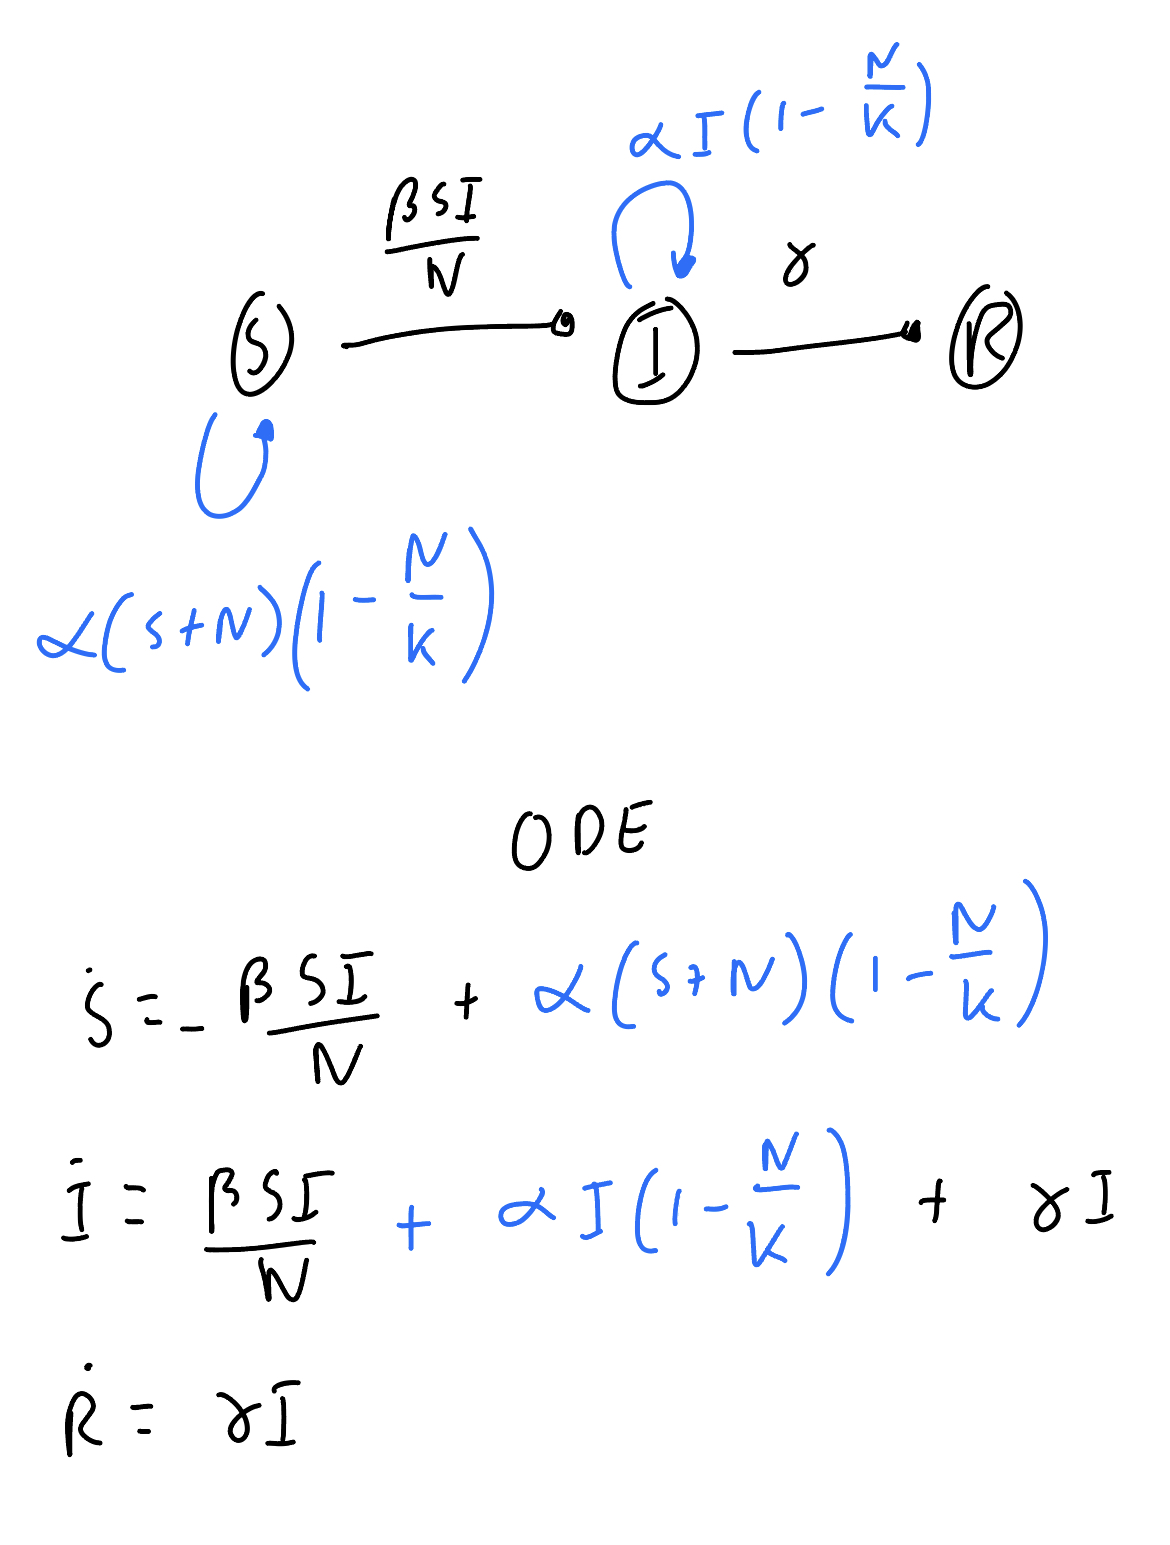 αI(1 - N/K)
βSI/N
γ
S I R
α(S+N)(1 - N/K)
ODE
Ṡ = - βSI/N + α(S+N)(1 - N/K)
İ = βSI/N + αI(1 - N/K) + γI
Ṙ = γI